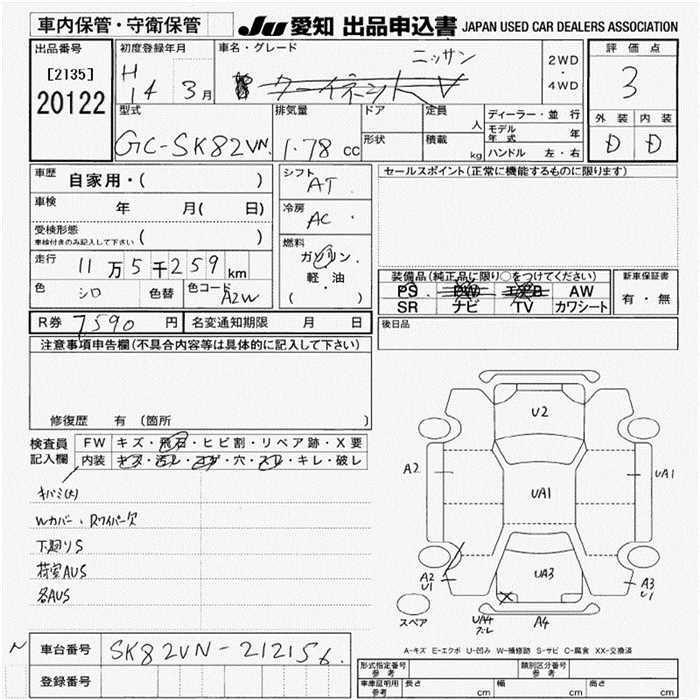 車内保管・守衛保管
JU 愛知 出品申込書 JAPAN USED CAR DEALERS ASSOCIATION
出品番号
[2135]
20122
初度登録年月
H 14 3月
車名・グレード
ニッサン
2WD
・
4WD
評価点
3
外装 内装
D D
型式
GC-SK82VN
排気量
1.78 cc
ドア
形状
定員
人
積載
kg
ディーラー・並行
モデル年式 年
ハンドル 左・右
車歴 自家用・( )
車検 年 月( 日)
受検形態
車検付きのみ記入して下さい ( )
走行 11万5千259km
色 シロ 色替 色コード A2W
シフト
AT
冷房
AC
燃料
ガソリン・
軽・油
( )
セールスポイント(正常に機能するものに限ります)
装備品(純正品に限り○をつけてください)
PS PW エアB AW
SR ナビ TV カワシート
新車保証書
有・無
後日品
R券 7590 円 名変通知期限 月 日
注意事項申告欄(不具合内容等は具体的に記入して下さい)
修復歴 有 (箇所 )
検査員
記入欄
FW キズ・飛石・ヒビ割・リペア跡・X要
内装 キズ・汚レ・コゲ・穴・スレ・キレ・破レ
キバミ(大)
Wカバー、Rワイパー欠
下廻りS
荷室AUS
各AUS
U2
A2
UA1
UA1
A2
U1
UA3
A3
U1
スペア
UA4
A4
A-キズ E-エクボ U-凹み W-補修跡 S-サビ C-腐食 XX-交換済
N
車台番号 SK82VN-212156
登録番号
形式指定番号
参考
類別区分番号
参考
車庫証明用
参考
長さ cm 幅 cm 高さ cm